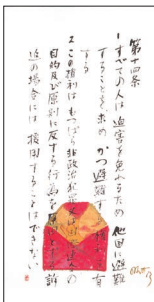 第十四条
1 すべて人は、迫害を免れるため、他国に避難
することを求め、かつ、避難する権利を有
する
2 この権利は、もっぱら非政治犯罪又は国際連合の
目的及び原則に反する行為を原因とする訴
追の場合には、援用することはできない